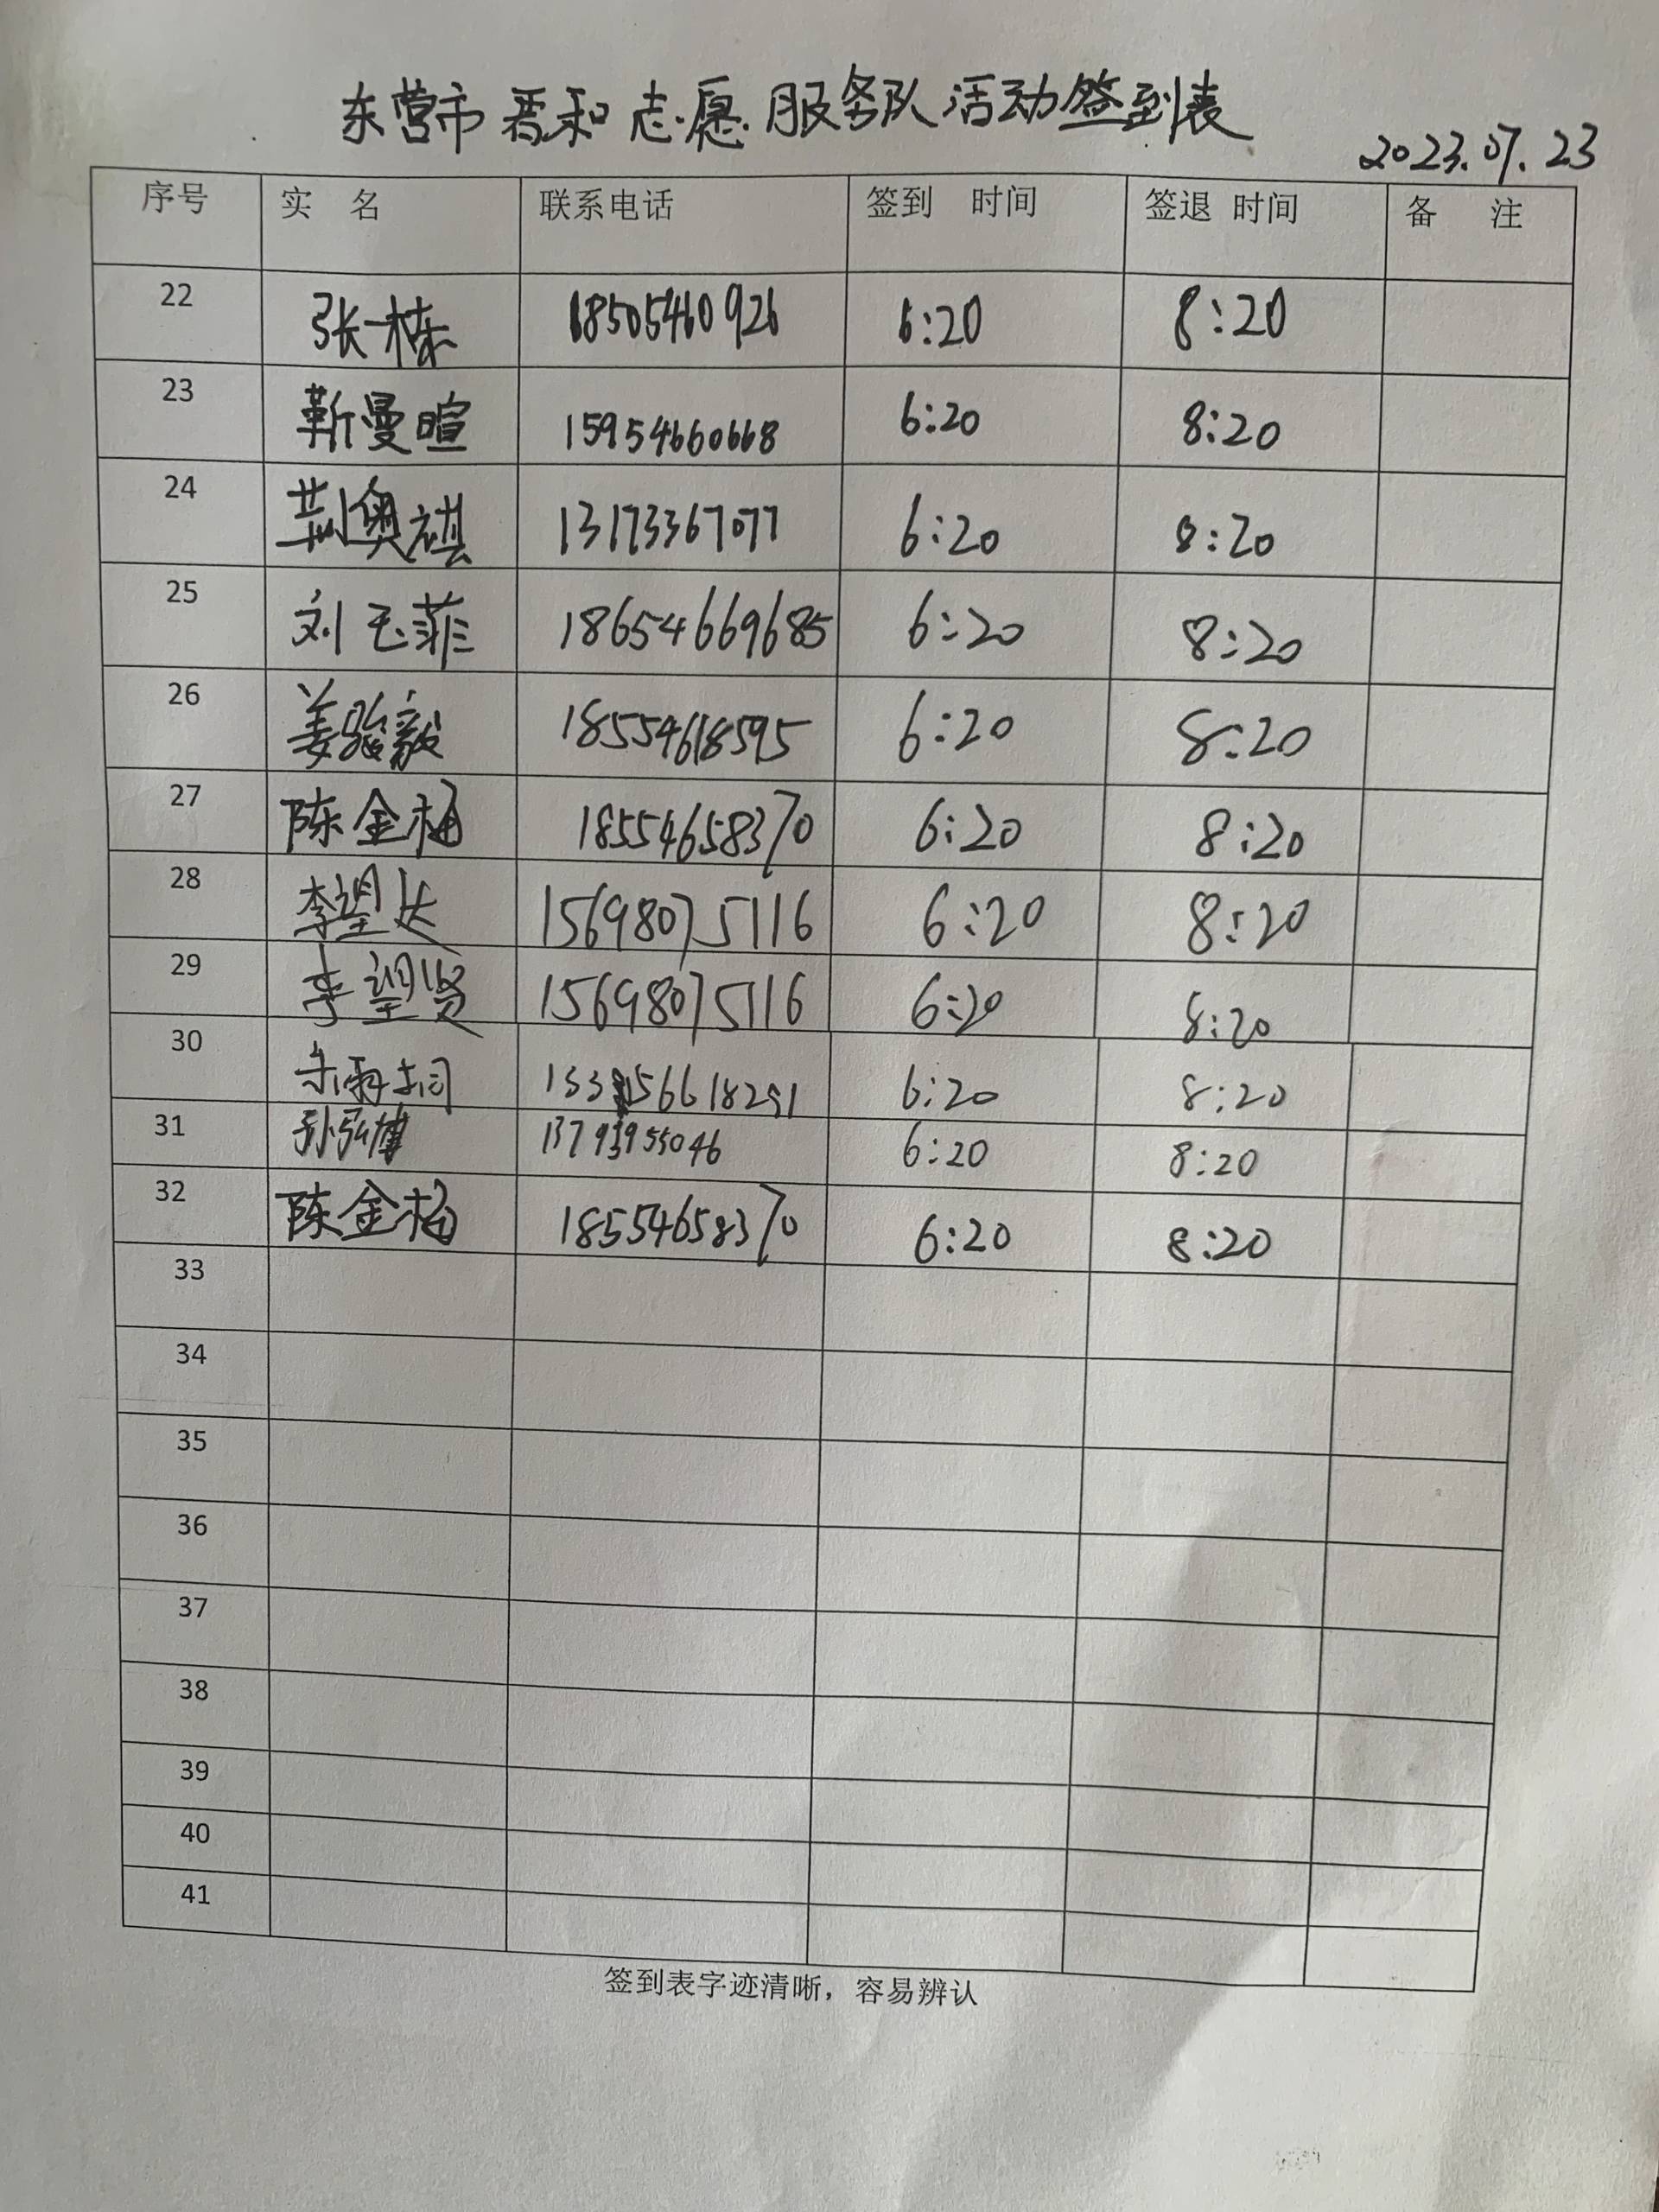 东营市春和志愿服务队活动签到表
2023.07.23
序号 实 名 联系电话 签到 时间 签退 时间 备 注
22 张一栋 18505460926 6:20 8:20
23 靳曼暄 15954660668 6:20 8:20
24 荆奥祺 13173367077 6:20 8:20
25 刘玉菲 18654669685 6:20 8:20
26 姜骁毅 18554618595 6:20 8:20
27 陈金梅 18554658370 6:20 8:20
28 李望达 15698075116 6:20 8:20
29 李望贤 15698075116 6:20 8:20
30 6:20 8:20
31 孙弘博 13793955046 6:20 8:20
32 陈金梅 18554658370 6:20 8:20
33
34
35
36
37
38
39
40
41
签到表字迹清晰，容易辨认